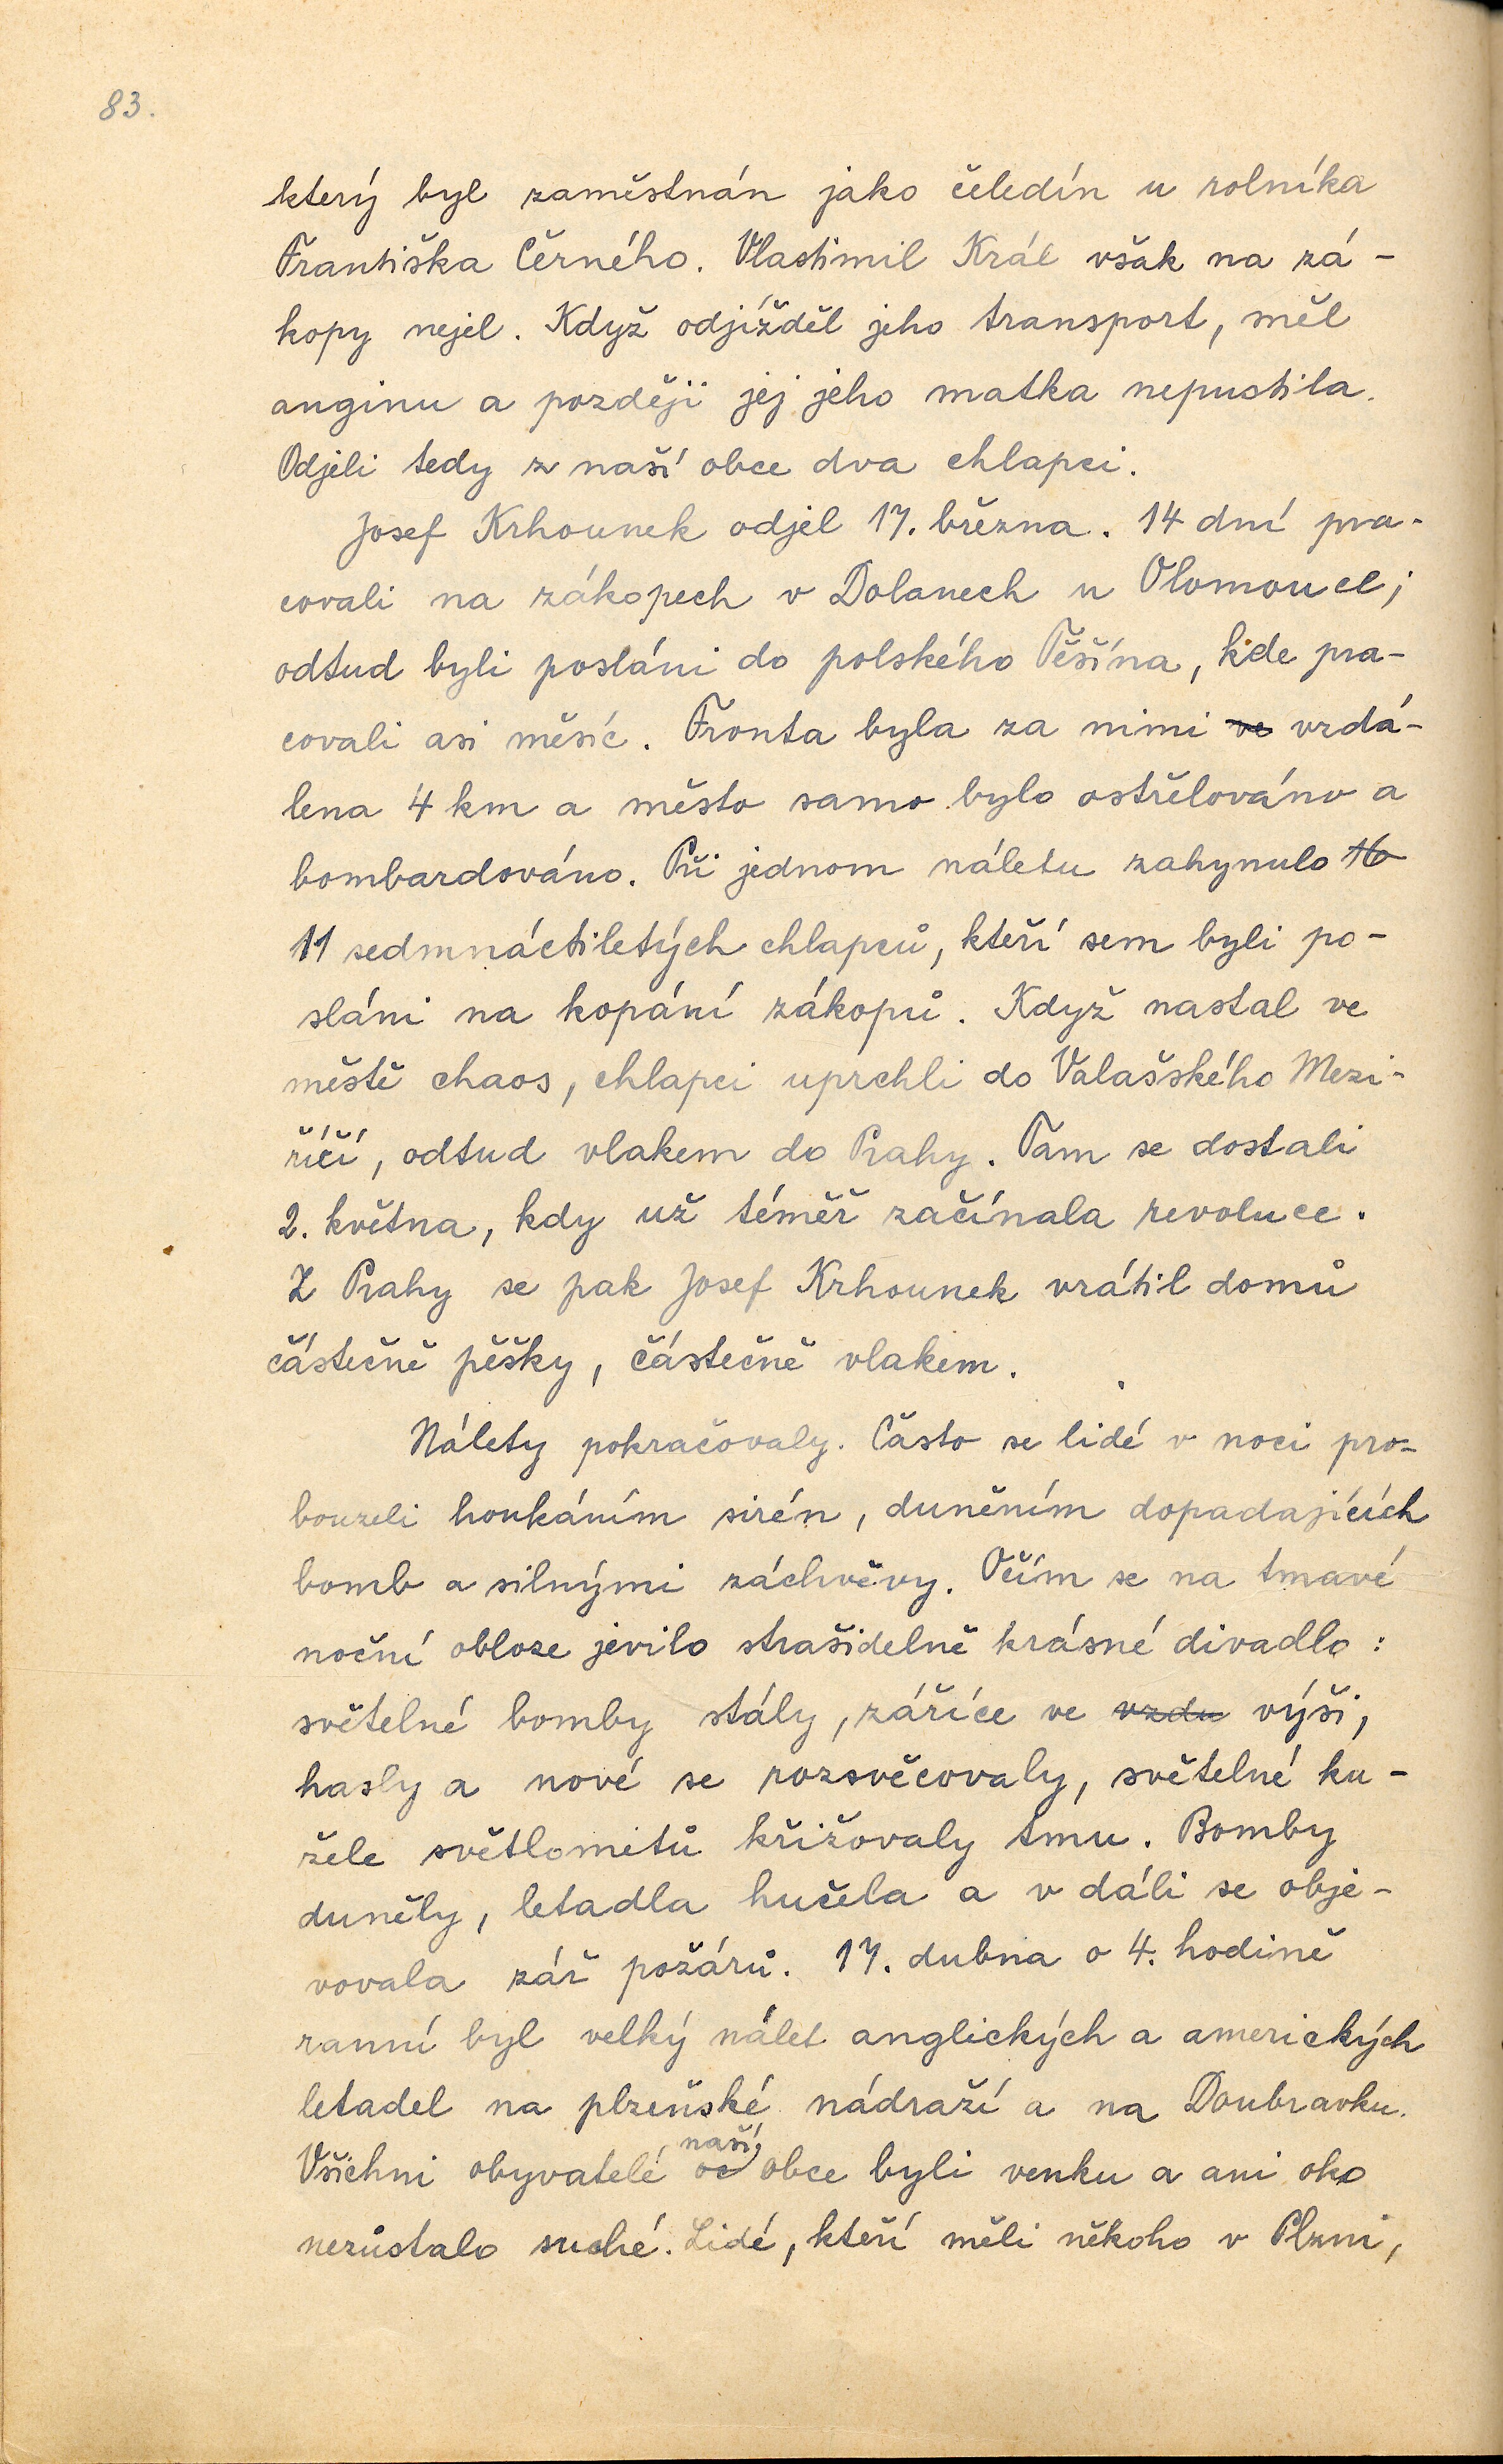 83.
který byl zaměstnán jako čeledín u rolníka
Františka Černého. Vlastimil Král však na zá-
kopy nejel. Když odjížděl jeho transport, měl
anginu a později jej jeho matka nepustila.
Odjeli tedy z naší obce dva chlapci.
Josef Krhounek odjel 17. března. 14 dní pra-
covali na zákopech v Dolanech u Olomouce;
odtud byli posláni do polského Těšína, kde pra-
covali asi měsíc. Fronta byla za nimi ve vzdá-
lena 4 km a město samo bylo ostřelováno a
bombardováno. Při jednom náletu zahynulo 16
11 sedmnáctiletých chlapců, kteří sem byli po-
sláni na kopání zákopů. Když nastal ve
městě chaos, chlapci uprchli do Valašského Mezi-
říčí, odtud vlakem do Prahy. Tam se dostali
2. května, kdy už téměř začínala revoluce.
Z Prahy se pak Josef Krhounek vrátil domů
částečně pěšky, částečně vlakem.
Nálety pokračovaly. Často se lidé v noci pro-
bouzeli houkáním sirén, duněním dopadajících
bomb a silnými záchvěvy. Očím se na tmavé
noční obloze jevilo strašidelně krásné divadlo:
světelné bomby stály, zářice ve vzdu výši,
hasly a nové se rozsvěcovaly, světelné ku-
žele světlometů křižovaly tmu. Bomby
duněly, letadla hučela a v dáli se obje-
vovala zář požárů. 17. dubna o 4. hodině
ranní byl velký nálet anglických a amerických
letadel na plzeňské nádraží a na Doubravku.
Všichni obyvatelé oc naší obce byli venku a ani oko
nezůstalo suché. Lidé, kteří měli někoho v Plzni,